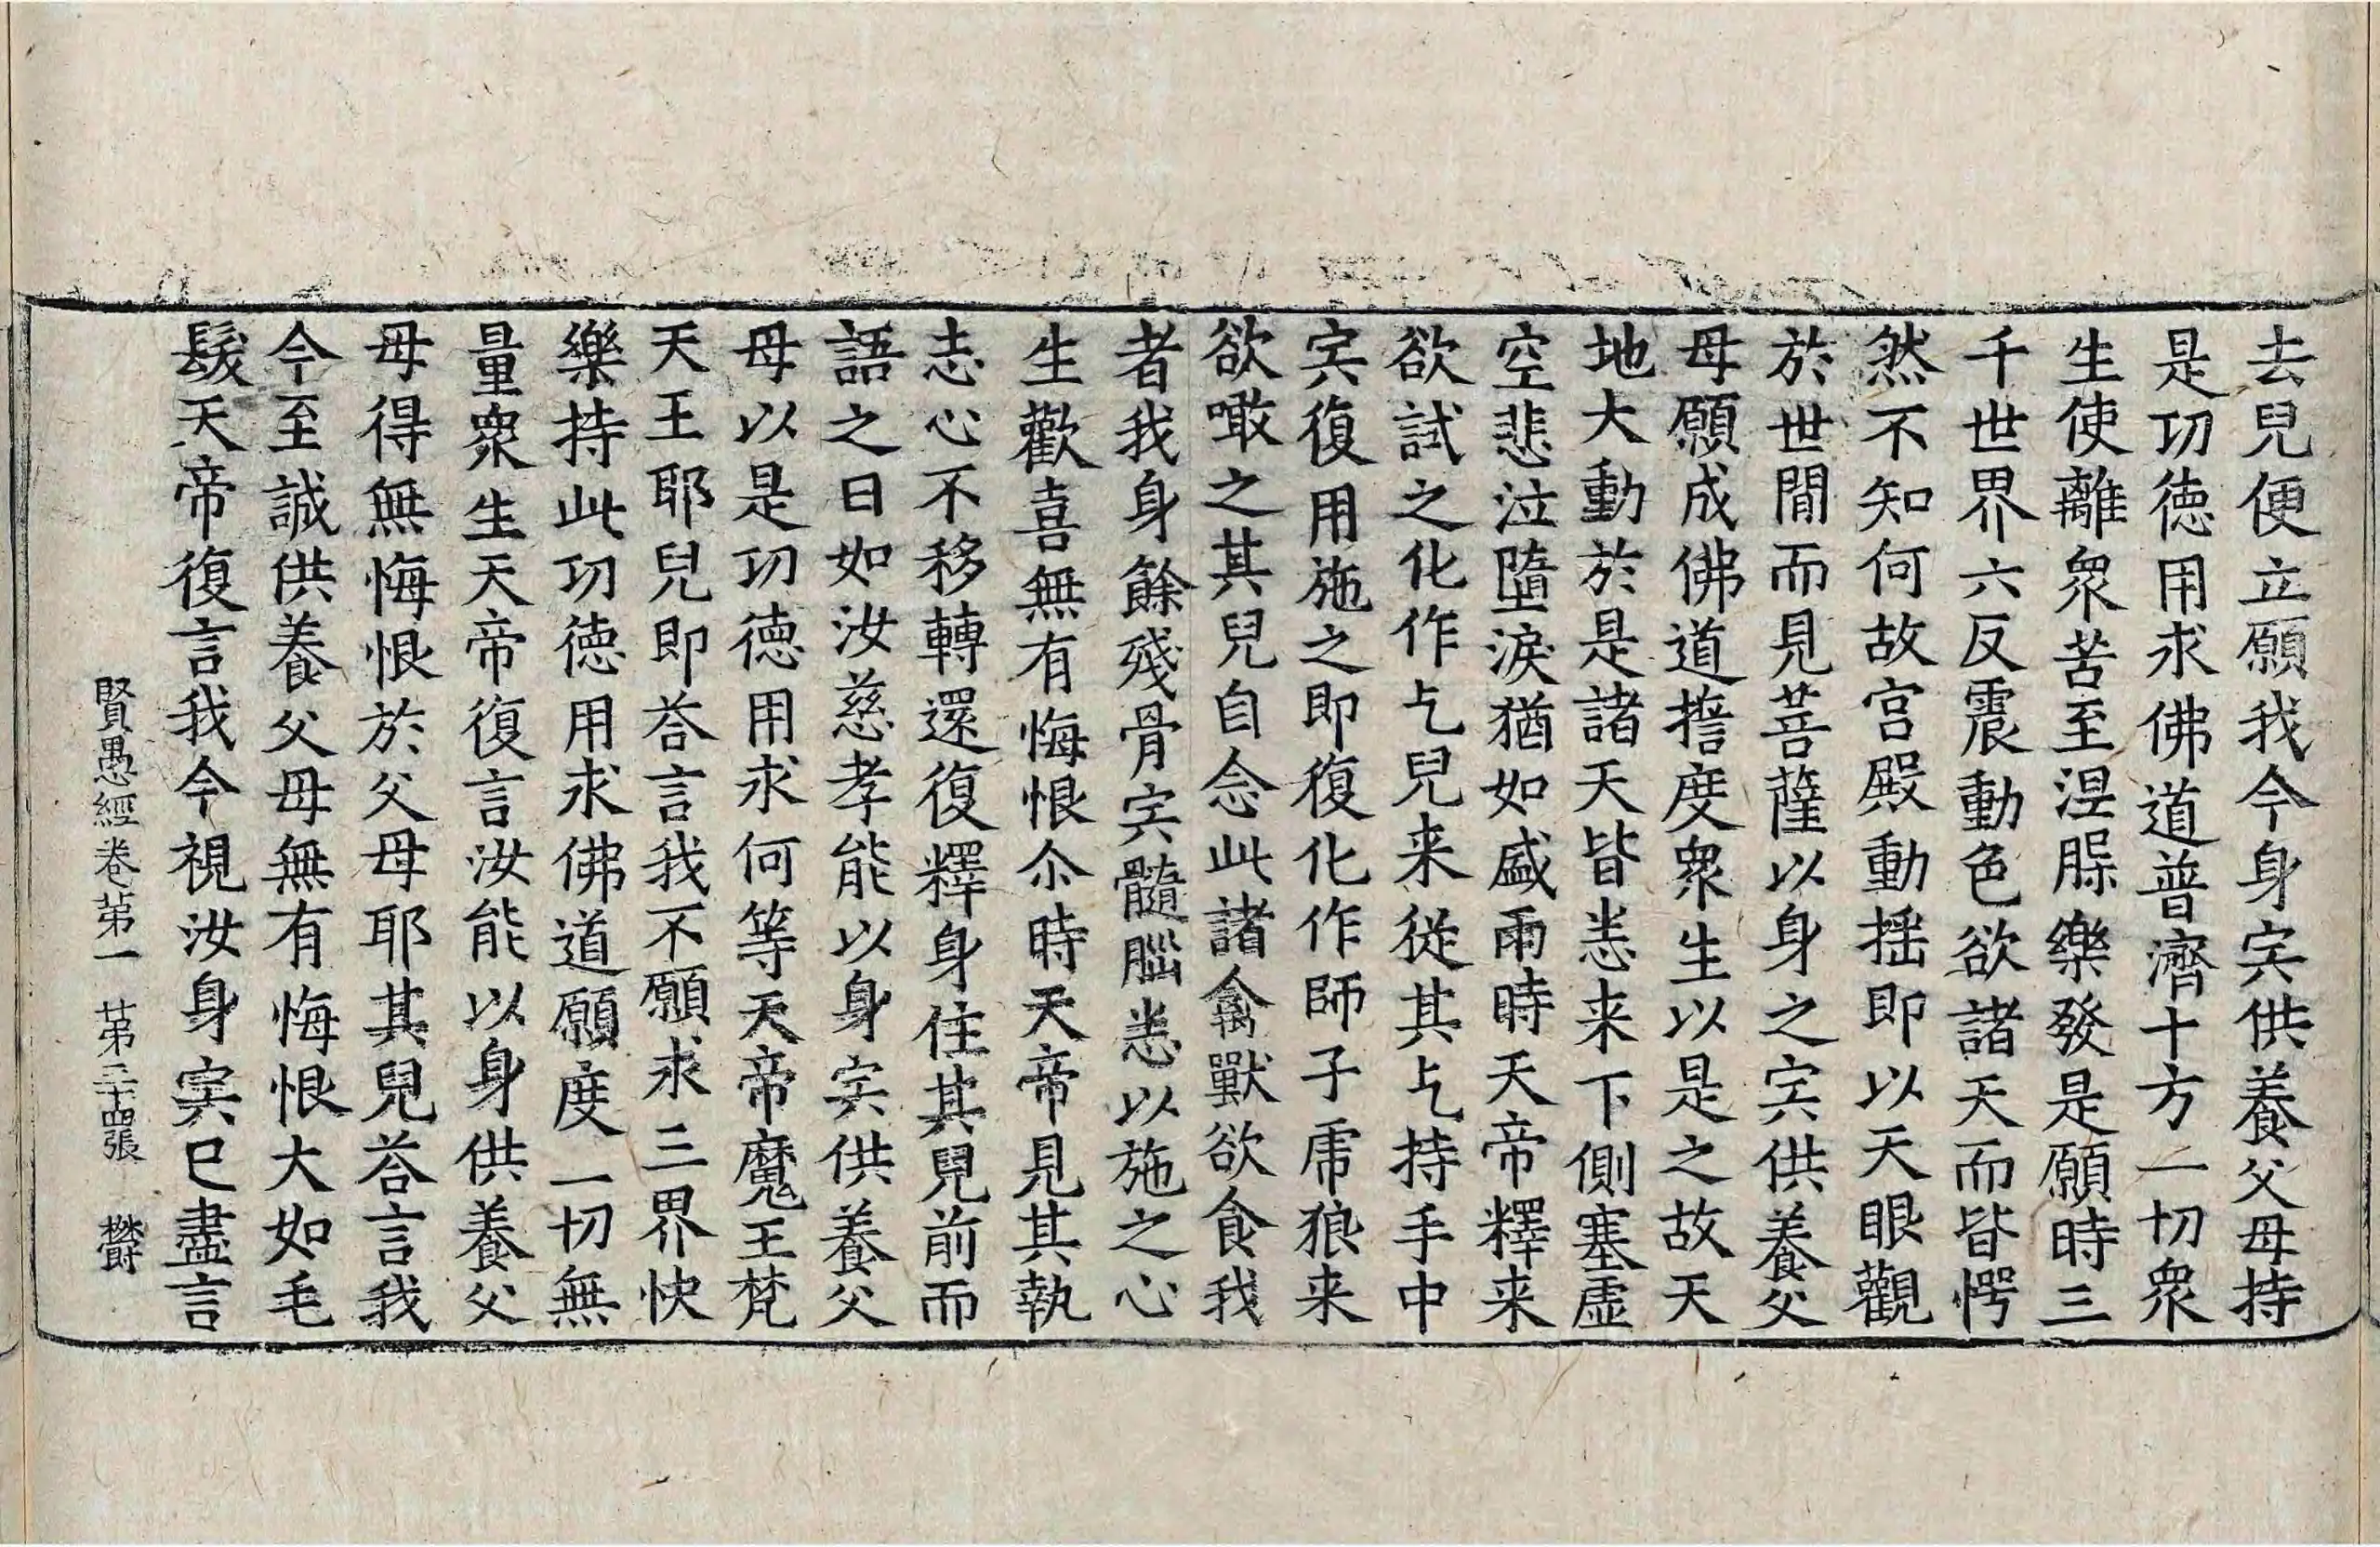 去兒便立願我今身宍供養父母持
是功徳用求佛道普濟十方一切衆
生使離衆苦至涅槃樂發是願時三
千世界六反震動色欲諸天而皆愕
然不知何故宮殿動揺即以天眼觀
於世間而見菩薩以身之宍供養父
母願成佛道擔度衆生以是之故天
地大動於是諸天皆悉来下側塞虛
空悲泣墮淚猶如盛雨時天帝釋来
欲試之化作乞兒来從其乞持手中
宍復用施之即復化作師子虎狼来
欲噉之其兒自念此諸禽獸欲食我
者我身餘殘骨宍髓腦悉以施之心
生歡喜無有悔恨尒時天帝見其執
志心不移轉還復釋身住其兒前而
語之曰如汝慈孝能以身宍供養父
母以是功徳用求何等天帝魔王梵
天王耶兒即荅言我不願求三界快
樂持此功徳用求佛道願度一切無
量衆生天帝復言汝能以身供養父
母得無悔恨於父母耶其兒荅言我
今至誠供養父母無有悔恨大如毛
髮天帝復言我今視汝身宍已盡言
賢愚經卷苐一 苐三十四張 欝